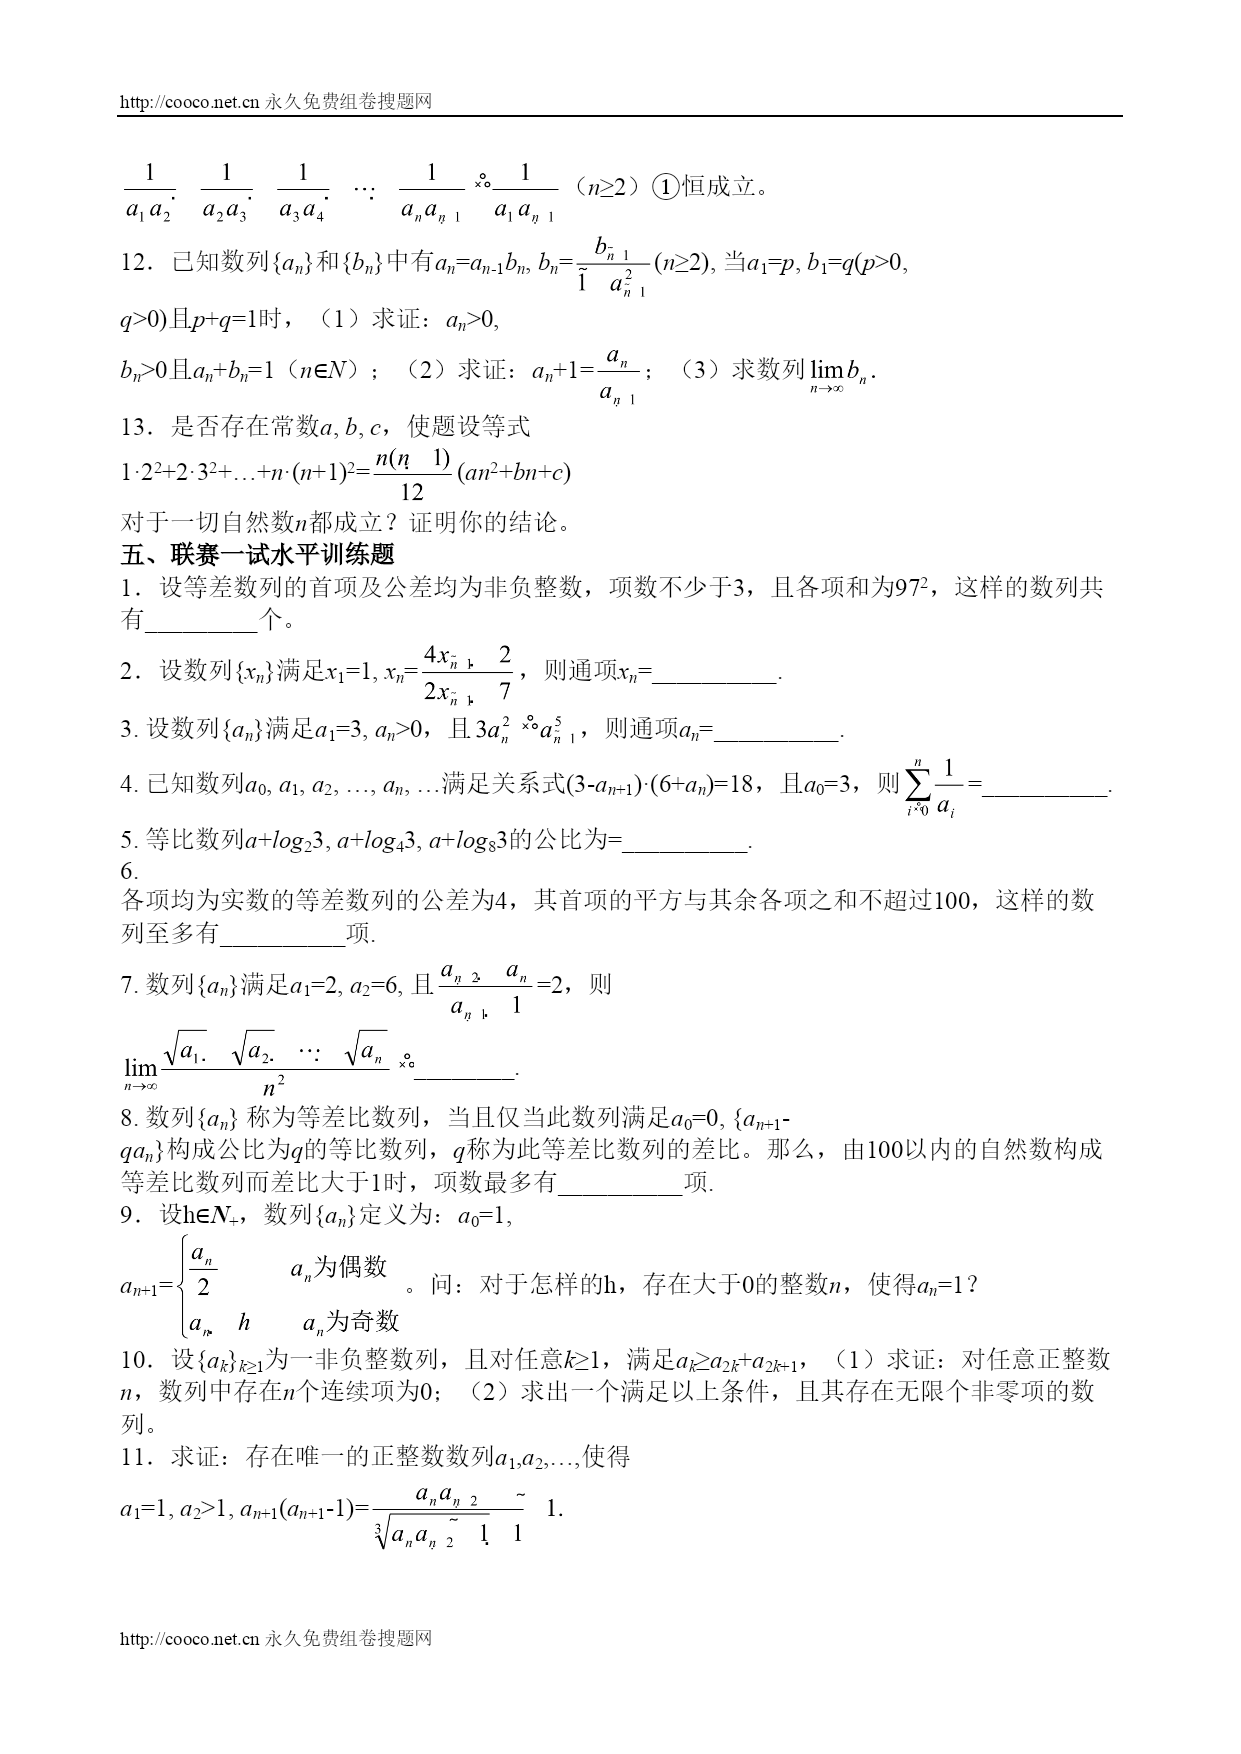 http://cooco.net.cn 永久免费组卷搜题网
1/(a₁a₂) 1/(a₂a₃) 1/(a₃a₄) … 1/(aₙaₙ 1) 1/(a₁aₙ 1)（n≥2）①恒成立。
12．已知数列{aₙ}和{bₙ}中有aₙ=aₙ₋₁bₙ, bₙ=bₙ 1/(1 a²ₙ 1)(n≥2), 当a₁=p, b₁=q(p>0,
q>0)且p+q=1时，（1）求证：aₙ>0,
bₙ>0且aₙ+bₙ=1（n∈N）；（2）求证：aₙ+1=aₙ/(aₙ 1)；（3）求数列lim n→∞ bₙ.
13．是否存在常数a, b, c，使题设等式
1·2²+2·3²+…+n·(n+1)²=n(n 1)/12(an²+bn+c)
对于一切自然数n都成立？证明你的结论。
五、联赛一试水平训练题
1．设等差数列的首项及公差均为非负整数，项数不少于3，且各项和为97²，这样的数列共
有_________个。
2．设数列{xₙ}满足x₁=1, xₙ=(4xₙ 1 2)/(2xₙ 1 7)，则通项xₙ=__________.
3. 设数列{aₙ}满足a₁=3, aₙ>0，且3aₙ² aₙ 1⁵，则通项aₙ=__________.
4. 已知数列a₀, a₁, a₂, …, aₙ, …满足关系式(3-aₙ₊₁)·(6+aₙ)=18，且a₀=3，则∑ n i 0 1/aᵢ=__________.
5. 等比数列a+log₂3, a+log₄3, a+log₈3的公比为=__________.
6.
各项均为实数的等差数列的公差为4，其首项的平方与其余各项之和不超过100，这样的数
列至多有__________项.
7. 数列{aₙ}满足a₁=2, a₂=6, 且(aₙ 2 aₙ)/(aₙ 1 1)=2，则
lim n→∞ (√a₁ √a₂ … √aₙ)/n² ________.
8. 数列{aₙ} 称为等差比数列，当且仅当此数列满足a₀=0, {aₙ₊₁-
qaₙ}构成公比为q的等比数列，q称为此等差比数列的差比。那么，由100以内的自然数构成
等差比数列而差比大于1时，项数最多有__________项.
9．设h∈N₊，数列{aₙ}定义为：a₀=1,
aₙ₊₁={aₙ/2 aₙ为偶数 aₙ h aₙ为奇数 。问：对于怎样的h，存在大于0的整数n，使得aₙ=1？
10．设{aₖ}ₖ≥₁为一非负整数列，且对任意k≥1，满足aₖ≥a₂ₖ+a₂ₖ₊₁，（1）求证：对任意正整数
n，数列中存在n个连续项为0；（2）求出一个满足以上条件，且其存在无限个非零项的数
列。
11．求证：存在唯一的正整数数列a₁,a₂,…,使得
a₁=1, a₂>1, aₙ₊₁(aₙ₊₁-1)=aₙaₙ 2/(∛(aₙaₙ 2 1) 1) 1.
http://cooco.net.cn 永久免费组卷搜题网